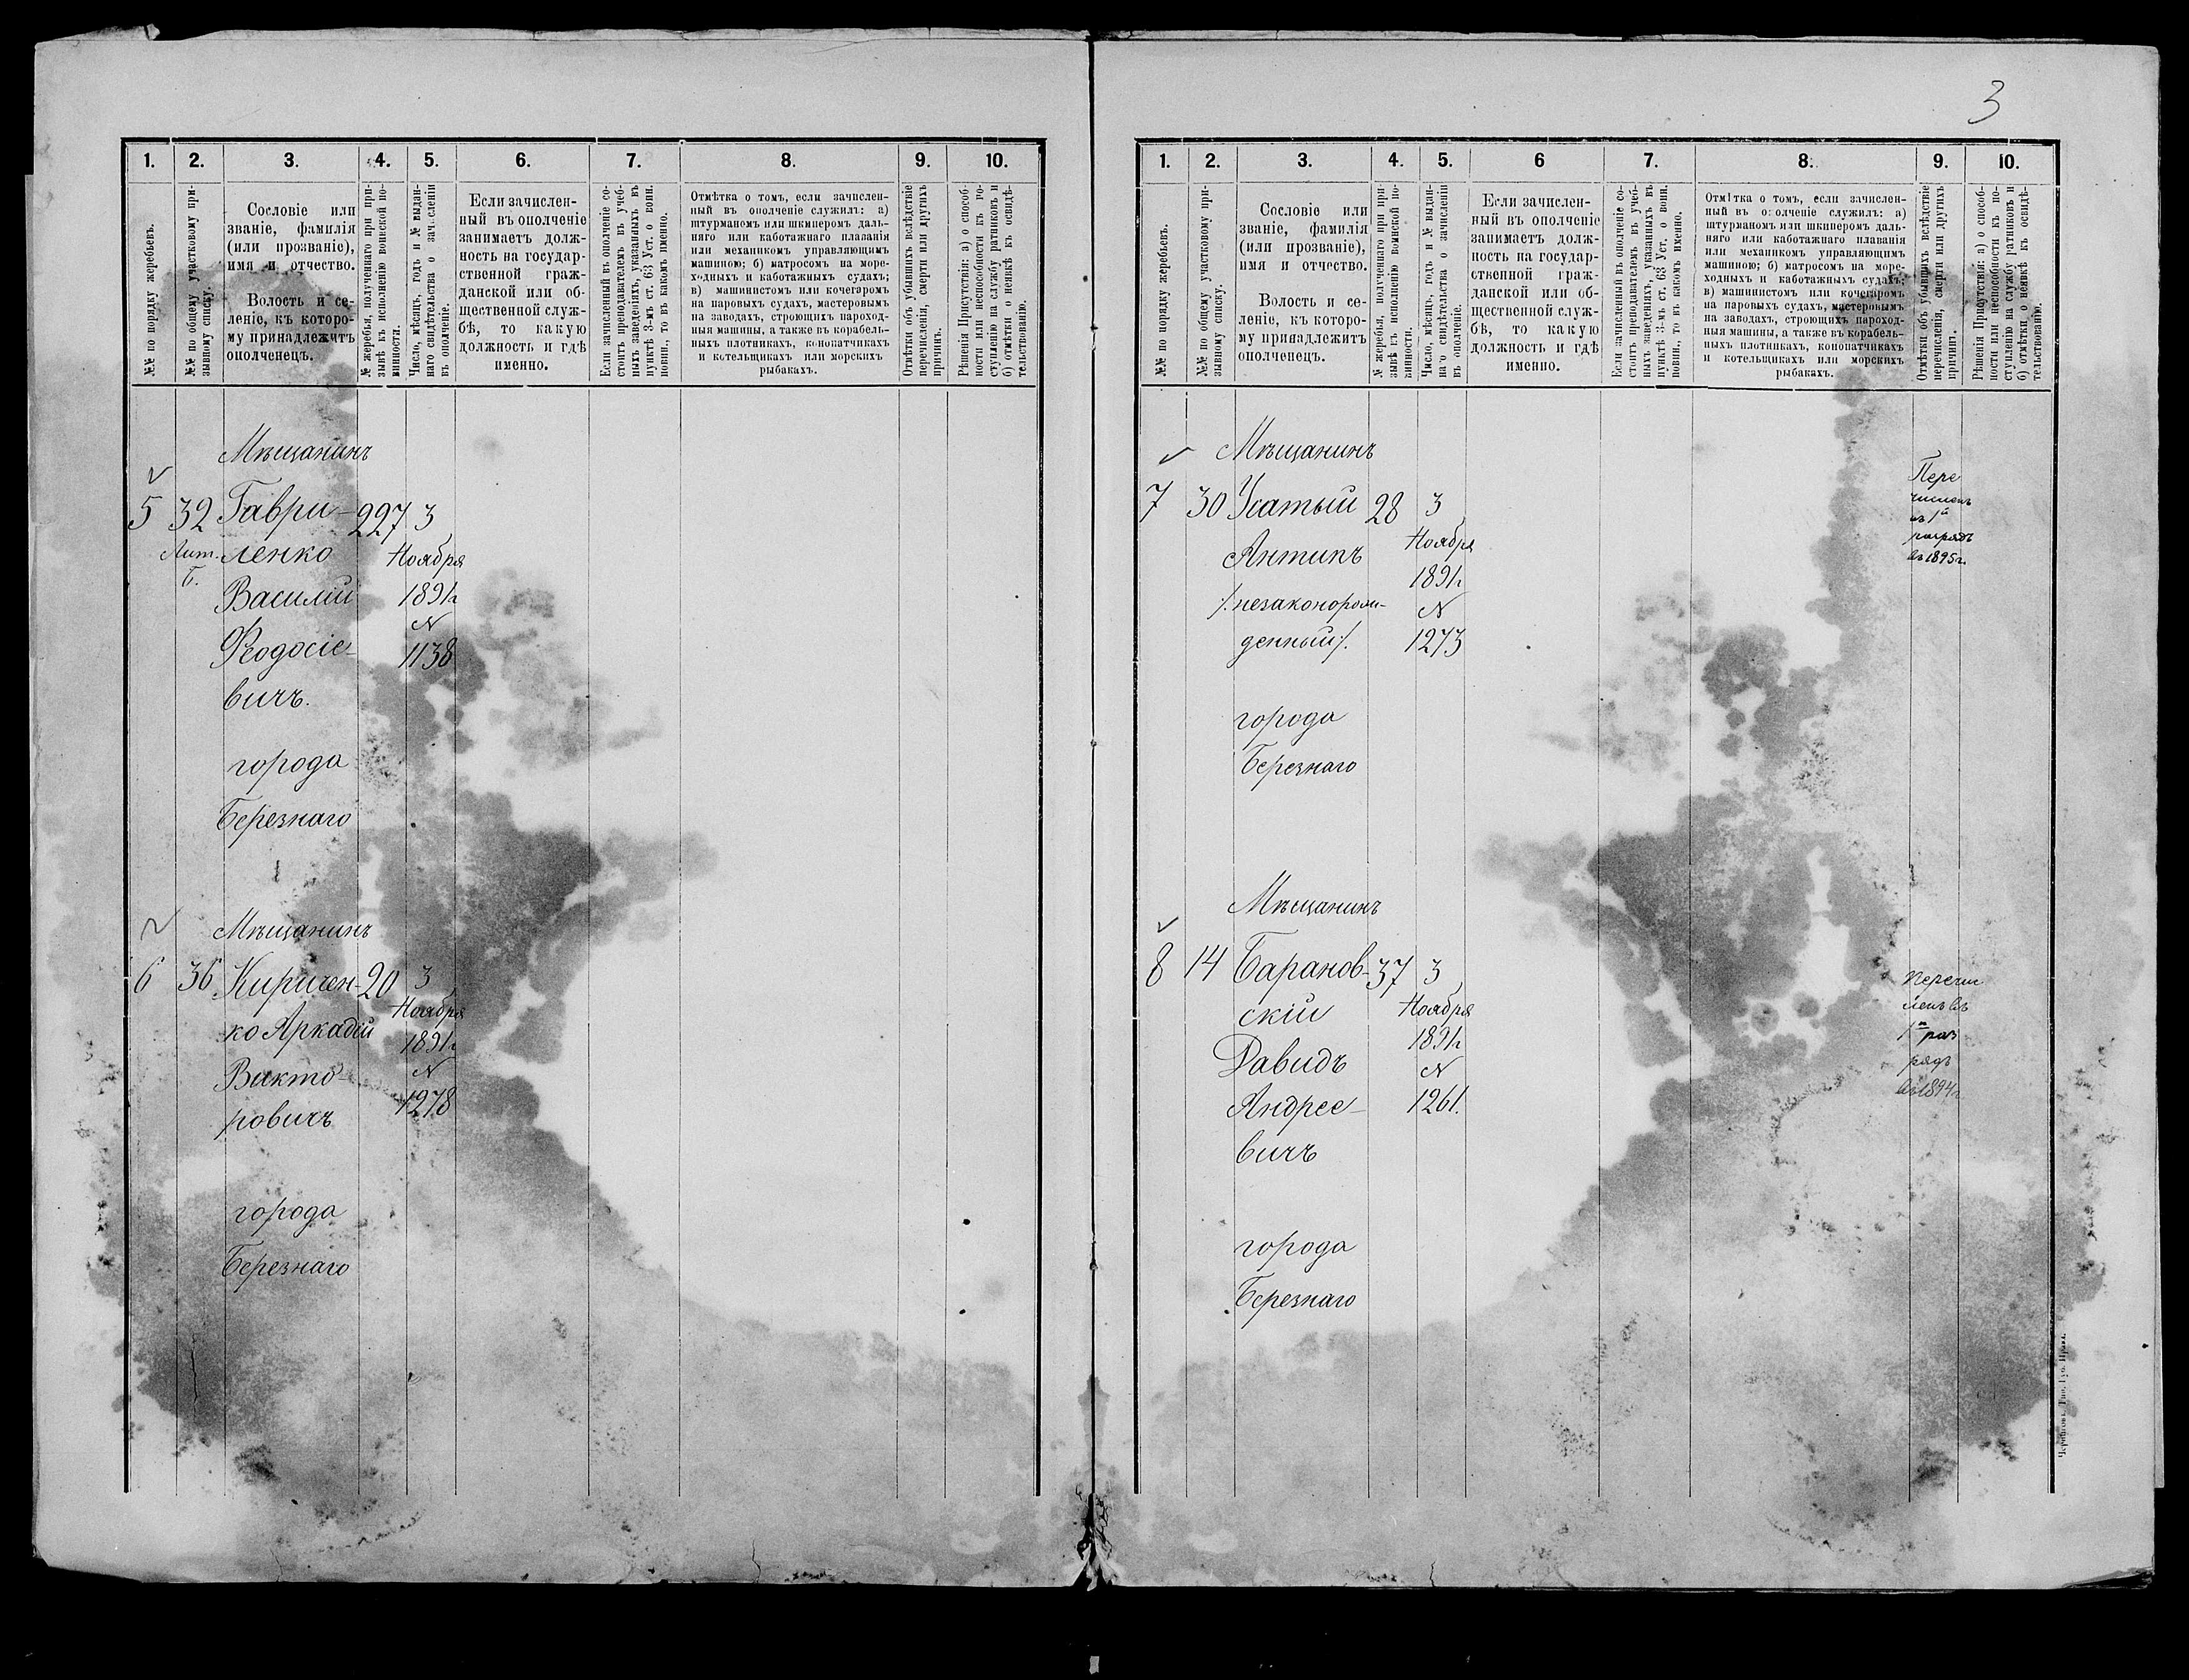 3
1.
2.
3.
4.
5.
6.
7.
8.
9.
10.
№№ по порядку жеребьевъ.
№№ по общему участковому при-
зывному списку.
Сословіе или
званіе, фамилія
(или прозваніе),
имя и отчество.
Волость и се-
леніе, къ которо-
му принадлежитъ
ополченецъ.
№ жеребья, полученнаго при при-
зывѣ къ исполненію воинской по-
винности.
Число, мѣсяцъ, годъ и № выдан-
наго свидѣтельства о зачисленіи
въ ополченіе.
Если зачислен-
ный въ ополченіе
занимаетъ долж-
ность на государ-
ственной граж-
данской или об-
щественной служ-
бѣ, то какую
должность и гдѣ
именно.
Если зачисленный въ ополченіе со-
стоитъ преподавателемъ въ учеб-
ныхъ заведеніяхъ, указанныхъ въ
пунктѣ 3-мъ ст. 63 Уст. о воин.
повин., то въ какомъ именно.
Отмѣтка о томъ, если зачислен-
ный въ ополченіе служилъ: а)
штурманомъ или шкиперомъ даль-
няго или каботажнаго плаванія
или механикомъ управляющимъ
машиною; б) матросомъ на море-
ходныхъ и каботажныхъ судахъ;
в) машинистомъ или кочегаромъ
на паровыхъ судахъ, мастеровымъ
на заводахъ, строющихъ пароход-
ныя машины, а также въ корабель-
ныхъ плотникахъ, конопатчикахъ
и котельщикахъ или морскихъ
рыбакахъ.
Отмѣтки объ убывшихъ вслѣдствіе
перечисленія, смерти или другихъ
причинъ.
Рѣшенія Присутствія: а) о способ-
ности или неспособности къ по-
ступленію на службу ратниковъ и
б) отмѣтки о неявкѣ къ освидѣ-
тельствованію.
Мѣщанинъ
5 32 Гаври- 227 3
Лит. ленко Ноября
Б.
Василій 1891г
N
Ѳеодосіе- 1138
вичъ.
города
Березнаго
Мѣщанинъ
6 36 Киричен- 20 3
Ноября
ко Аркадій 1891г
Викто- N
ровичъ 1278
города
Березнаго
1.
2.
3.
4.
5.
6
7.
8.
9.
10.
№№ по порядку жеребьевъ.
№№ по общему участковому при-
зывному списку.
Сословіе или
званіе, фамилія
(или прозваніе),
имя и отчество.
Волость и се-
леніе, къ которо-
му принадлежитъ
ополченецъ.
№ жеребья, полученнаго при при-
зывѣ къ исполненію воинской по-
винности.
Число, мѣсяцъ, годъ и № выдан-
наго свидѣтельства о зачисленіи
въ ополченіе.
Если зачислен-
ный въ ополченіе
занимаетъ долж-
ность на государ-
ственной граж-
данской или об-
щественной служ-
бѣ, то какую
должность и гдѣ
именно.
Если зачисленный въ ополченіе со-
стоитъ преподавателемъ въ учеб-
ныхъ заведеніяхъ, указанныхъ въ
пунктѣ 3-мъ ст. 63 Уст. о воин.
повин., то въ какомъ именно.
Отмѣтка о томъ, если зачислен-
ный въ ополченіе служилъ: а)
штурманомъ или шкиперомъ даль-
няго или каботажнаго плаванія
или механикомъ управляющимъ
машиною; б) матросомъ на море-
ходныхъ и каботажныхъ судахъ;
в) машинистомъ или кочегаромъ
на паровыхъ судахъ, мастеровымъ
на заводахъ, строющихъ пароход-
ныя машины, а также въ корабель-
ныхъ плотникахъ, конопатчикахъ
и котельщикахъ или морскихъ
рыбакахъ.
Отмѣтки объ убывшихъ вслѣдствіе
перечисленія, смерти или другихъ
причинъ.
Рѣшенія Присутствія: а) о способ-
ности или неспособности къ по-
ступленію на службу ратниковъ и
б) отмѣтки о неявкѣ къ освидѣ-
тельствованію.
Мѣщанинъ
7 30 Усатый 28 3
Антипъ Ноября
1891г
/.незаконорож- N
денный/. 1273
города
Березнаго
Пере
численъ
въ 1й
разрядъ
въ 1895г.
Мѣщанинъ
8 14 Баранов- 37 3
скій Ноября
1891г
Давидъ N
Андрее- 1261.
вичъ
города
Березнаго
Перечис
ленъ въ
1й раз
рядъ
въ 1894г
Черниговъ. Тип. Губ. Правл.